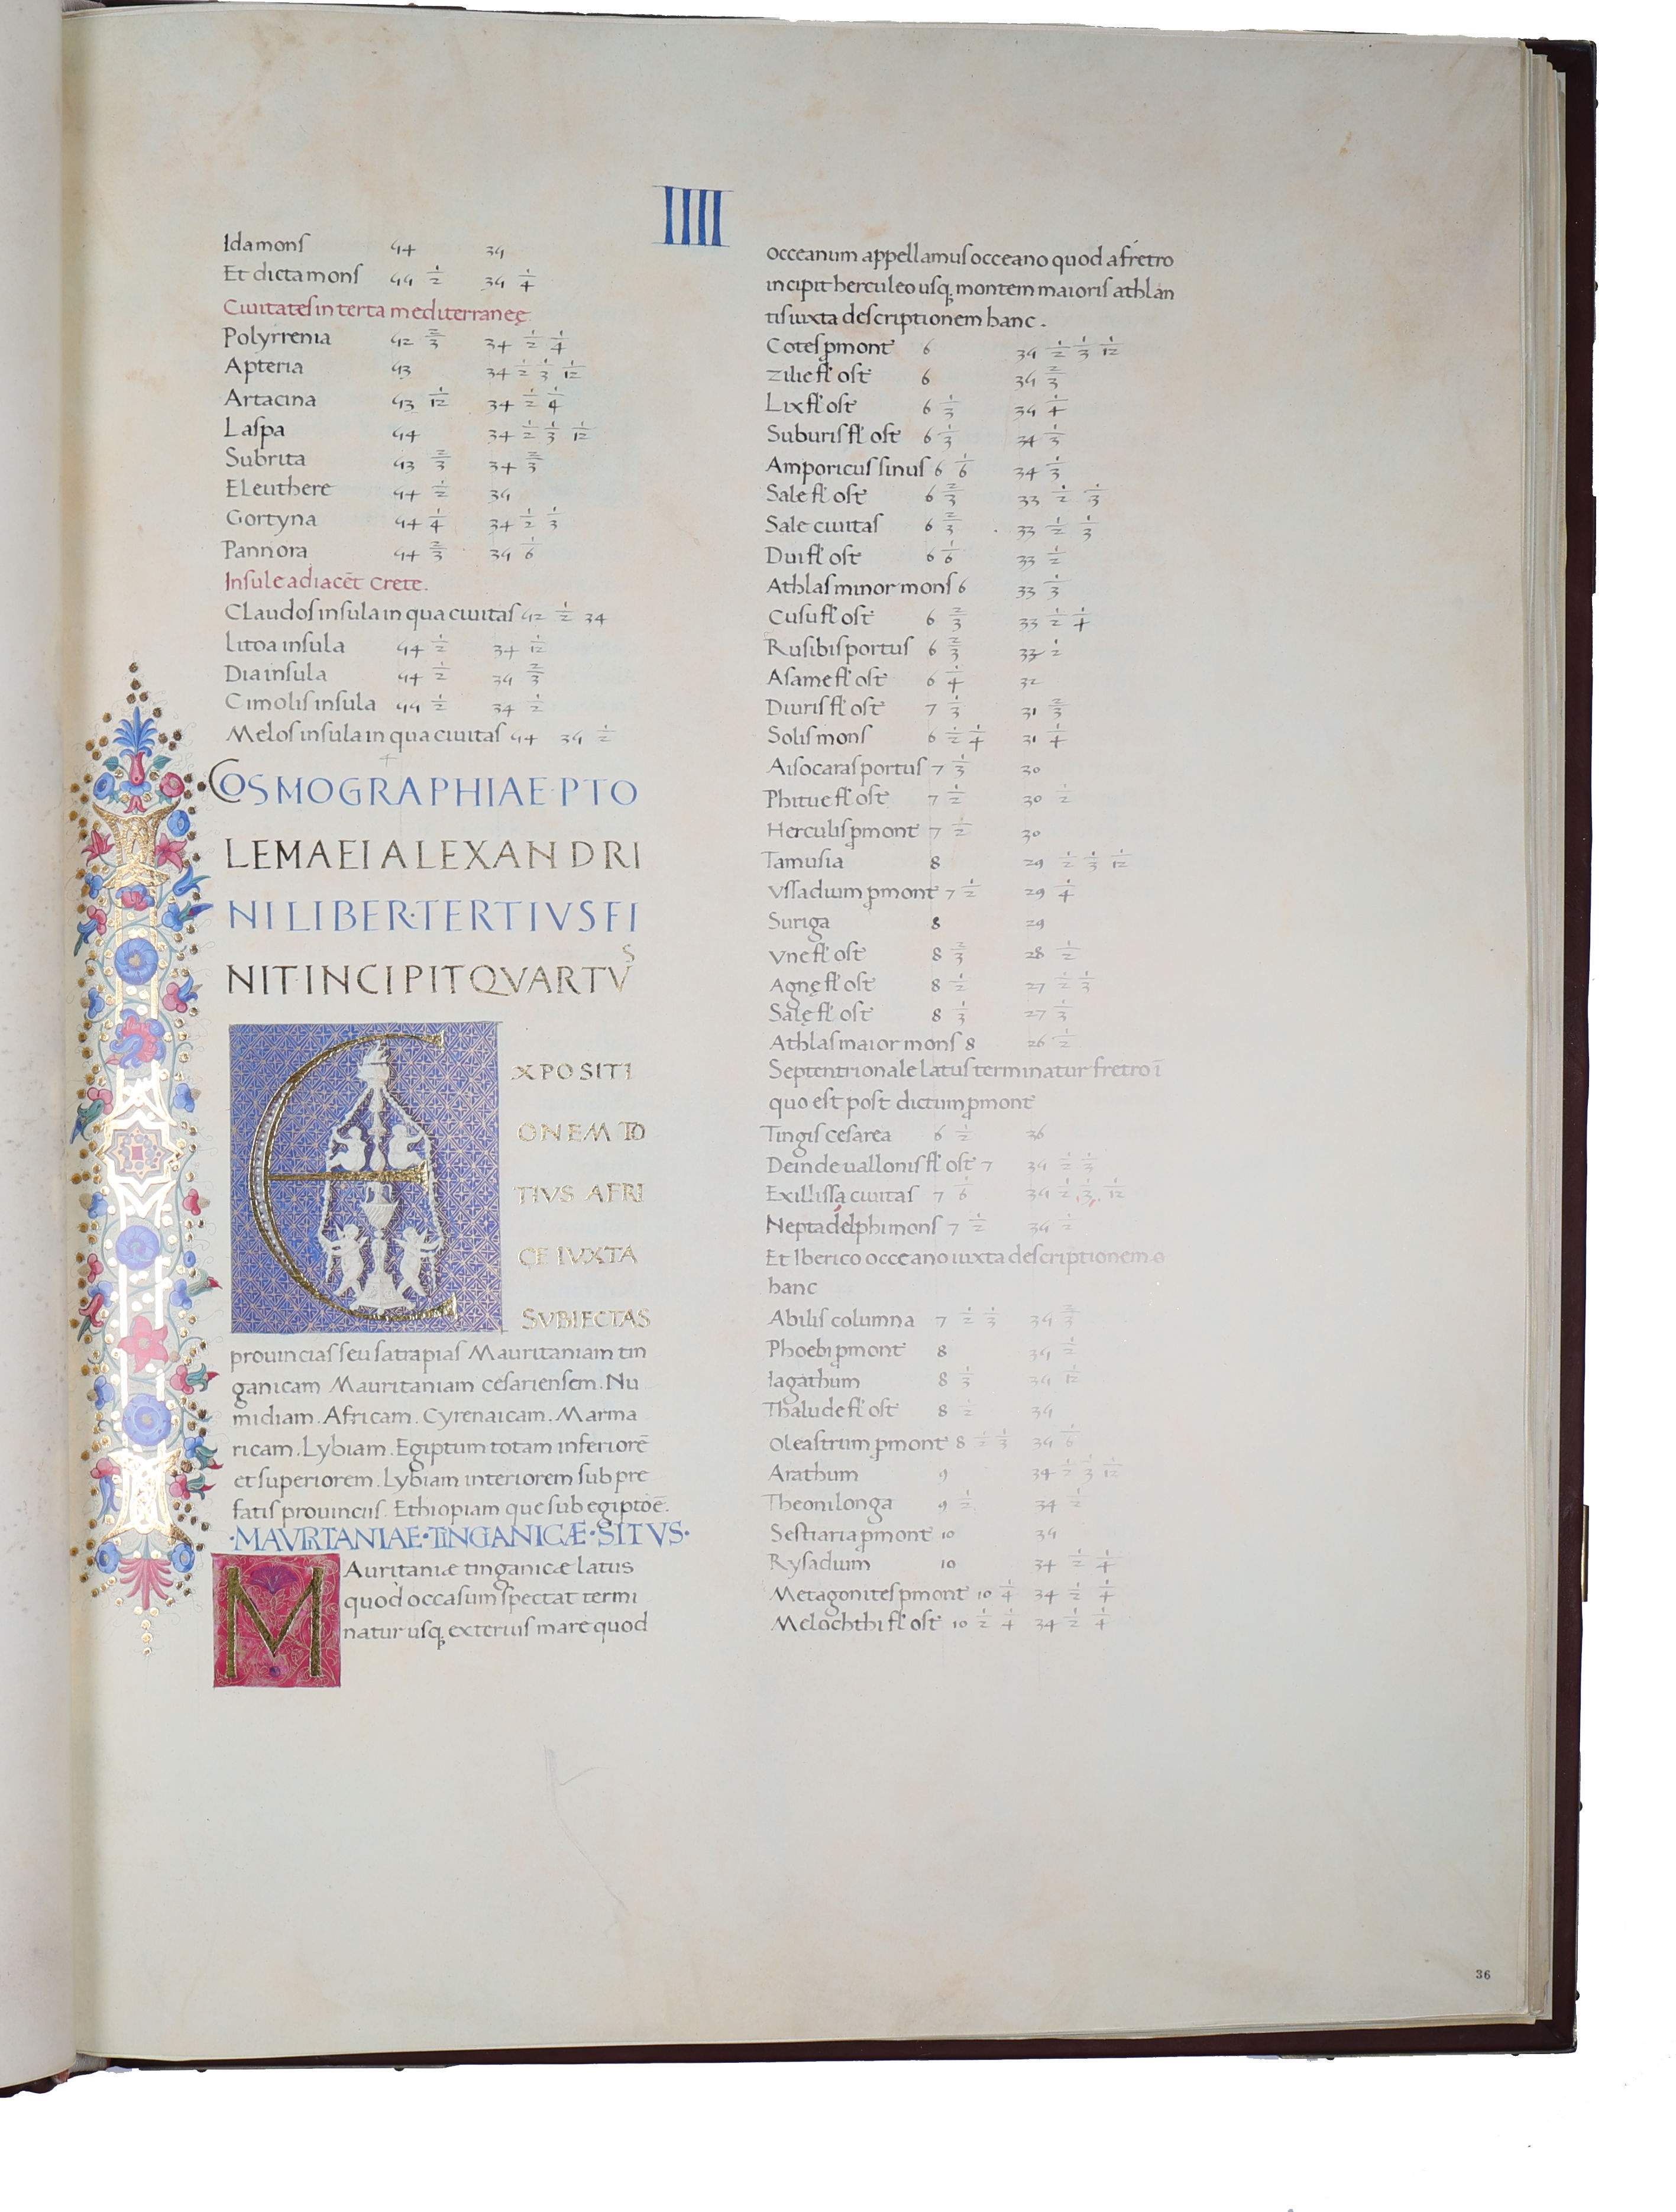 IIII
Ida monſ 44 34
Et dicta monſ 44 1/2 34 1/4
Ciuitateſ in terra mediterraneę
Polyrrenia 42 2/3 34 1/2 1/4
Apteria 43 34 1/2 1/3 1/12
Artacina 43 1/12 34 1/2 1/4
Laſpa 44 34 1/2 1/3 1/12
Subrita 43 2/3 34 2/3
Eleuthere 44 1/2 34
Gortyna 44 1/4 34 1/2 1/3
Pannora 44 2/3 34 1/6
Inſule adiacēt Crete.
Claudoſ inſula in qua ciuitaſ 42 1/2 34
Litoa inſula 44 1/2 34 1/12
Dia inſula 44 1/2 34 2/3
Cimoliſ inſula 44 1/2 34 1/2
Meloſ inſula in qua ciuitaſ 44 34 1/2
COSMOGRAPHIAE·PTO
LEMAEI ALEXANDRI
NI LIBER·TERTIVS FI
NIT·INCIPIT QVARTVS
EXPOSITI
ONEM TO
TIVS AFRI
CE IVXTA
SVBIECTAS
prouinciaſ ſeu ſatrapiaſ Mauritaniam tin
ganicam Mauritaniam ceſarienſem. Nu
midiam. Africam. Cyrenaicam. Marma
ricam. Lybiam. Egiptum totam inferiorē
et ſuperiorem. Lybiam interiorem ſub pre
fatiſ prouinciiſ. Ethiopiam que ſub egipto ē.
·MAVRITANIAE·TINGANICÆ·SITVS·
Mauritaniæ tinganicæ latus
quod occaſum ſpectat termi
natur uſq; exteriuſ mare quod
occeanum appellamuſ occeano quod a fretro
incipit herculeo uſq; montem maioriſ athlan
tiſ iuxta deſcriptionem hanc.
Coteſ pmont 6 34 1/2 1/3 1/12
Zilie fl' oſt 6 34 2/3
Lix fl' oſt 6 1/3 34 1/4
Suburiſ fl' oſt 6 1/3 34 1/3
Amporicuſ ſinuſ 6 1/6 34 1/3
Sale fl' oſt 6 2/3 33 1/2 1/3
Sale ciuitaſ 6 2/3 33 1/2 1/3
Dui fl' oſt 6 1/6 33 1/2
Athlaſ minor monſ 6 33 1/3
Cuſu fl' oſt 6 2/3 33 1/2 1/4
Ruſibiſ portuſ 6 2/3 33 1/2
Aſame fl' oſt 6 1/4 32
Diuriſ fl' oſt 7 1/3 31 2/3
Soliſ monſ 6 1/2 1/4 31 1/4
Aiſocaraſ portuſ 7 1/3 30
Phitue fl' oſt 7 1/2 30 1/2
Herculiſ pmont 7 1/2 30
Tamuſia 8 29 1/2 1/3 1/12
Vſſadium pmont 7 1/2 29 1/4
Suriga 8 29
Vne fl' oſt 8 2/3 28 1/2
Agnę fl' oſt 8 1/2 27 1/2 1/3
Salę fl' oſt 8 1/3 27 1/3
Athlaſ maior monſ 8 26 1/2
Septentrionale latuſ terminatur fretro ī
quo eſt poſt dictum pmont
Tingiſ ceſarea 6 1/2 36
Deinde ualloniſ fl' oſt 7 34 1/2 1/3
Exilliſſa ciuitaſ 7 1/6 34 1/2 1/3 1/12
Neptadelphi monſ 7 1/2 34 1/2
Et Iberico occeano iuxta deſcriptionem
hanc
Abiliſ columna 7 1/2 1/3 34 2/3
Phoebi pmont 8 34 1/2
Iagathum 8 1/3 34 1/12
Thalude fl' oſt 8 1/2 34
Oleaſtrum pmont 8 1/2 1/3 34 1/6
Arathum 9 34 1/2 1/3 1/12
Theonilonga 9 1/2 34 1/2
Seſtiaria pmont 10 34
Ryſadium 10 34 1/2 1/4
Metagoniteſ pmont 10 1/4 34 1/2 1/4
Melochthi fl' oſt 10 1/2 1/4 34 1/2 1/4
36